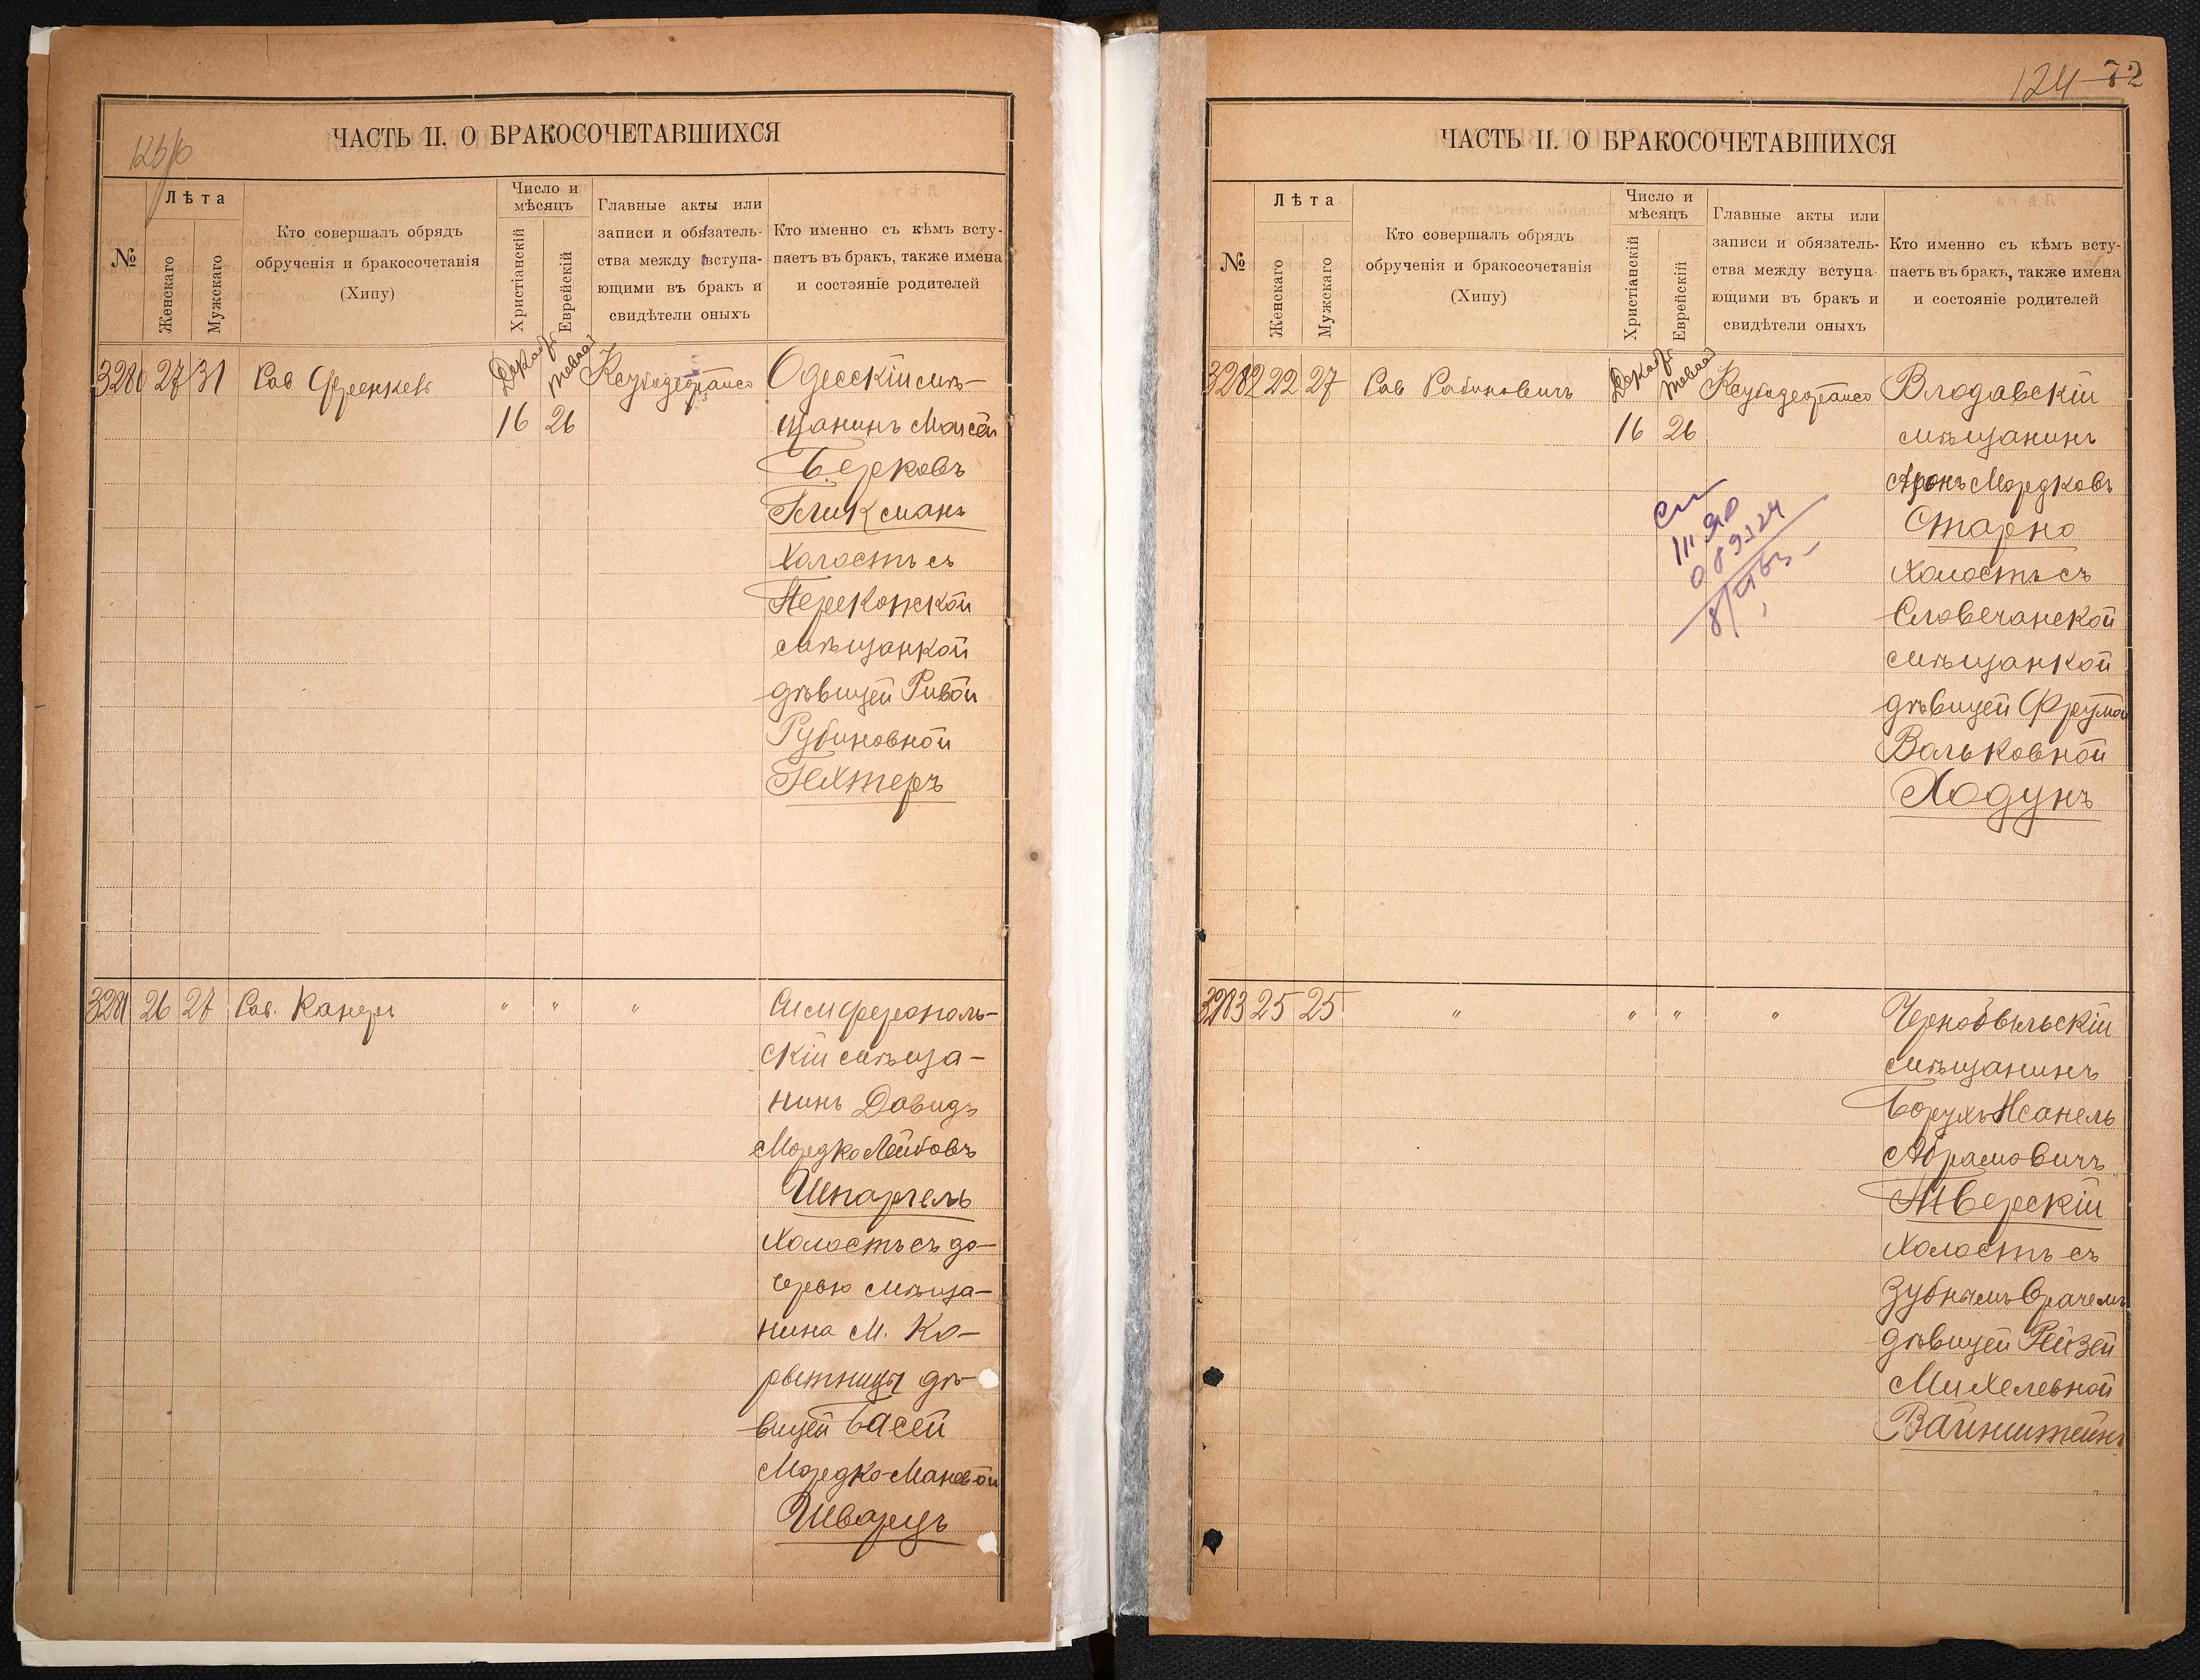 ЧАСТЬ II. О БРАКОСОЧЕТАВШИХСЯ
№
Лѣта
Женскаго
Мужскаго
Кто совершалъ обрядъ
обрученія и бракосочетанія
(Хипу)
Число и
мѣсяцъ
Христіанскій
Еврейскій
Главные акты или
записи и обязатель-
ства между вступа-
ющими въ бракъ и
свидѣтели оныхъ
Кто именно съ кѣмъ всту-
паетъ въ бракъ, также имена
и состояніе родителей
3280 27 31 Рав Френкель
16 26
Одесскій мѣ-
щанинъ Моисей
Берковъ
Гликсманъ
холостъ съ
Перекопской
мѣщанкой
дѣвицей Ривой
Рубиновной
Гехтеръ
3281 26 27 Рав. Канеръ " " "
Симферополь-
скій мѣща-
нинъ Довидъ
Мордко Лейбовъ
Шпаргель
холостъ съ до-
черью мѣща-
нина м. Ко-
рытницы дѣ-
вицей Басей
Мордко-Маневой
Шварцъ
124 72
ЧАСТЬ II. О БРАКОСОЧЕТАВШИХСЯ
№
Лѣта
Женскаго
Мужскаго
Кто совершалъ обрядъ
обрученія и бракосочетанія
(Хипу)
Число и
мѣсяцъ
Христіанскій
Еврейскій
Главные акты или
записи и обязатель-
ства между вступа-
ющими въ бракъ и
свидѣтели оныхъ
Кто именно съ кѣмъ всту-
паетъ въ бракъ, также имена
и состояніе родителей
3282 22 27 Рав Рабиновичъ
16 26
Влодавскій
мѣщанинъ
Аронъ Мордковъ
Старно
холостъ съ
Словечанской
мѣщанкой
дѣвицей Фрумой
Вольковной
Ходунъ
3283 25 25 " " " "
Чернобыльскій
мѣщанинъ
Борухъ
Абрамовичъ
Тверскій
холостъ съ
зубнымъ врачемъ
дѣвицей Рейзей
Михелевной
Вайнштейнъ